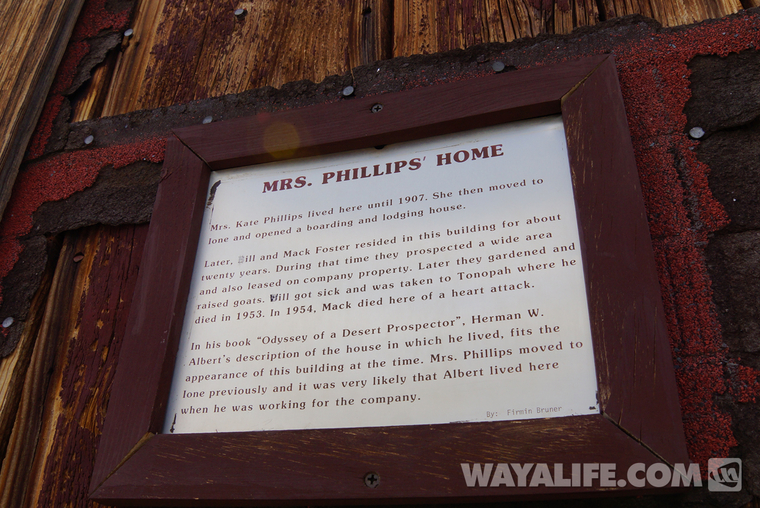 MRS. PHILLIPS' HOME
Mrs. Kate Phillips lived here until 1907. She then moved to
Ione and opened a boarding and lodging house.
Later, Bill and Mack Foster resided in this building for about
twenty years. During that time they prospected a wide area
and also leased on company property. Later they gardened and
raised goats. Will got sick and was taken to Tonopah where he
died in 1953. In 1954, Mack died here of a heart attack.
In his book "Odyssey of a Desert Prospector", Herman W.
Albert's description of the house in which he lived, fits the
appearance of this building at the time. Mrs. Phillips moved to
Ione previously and it was very likely that Albert lived here
when he was working for the company.
By: Firmin Bruner
WAYALIFE.COM